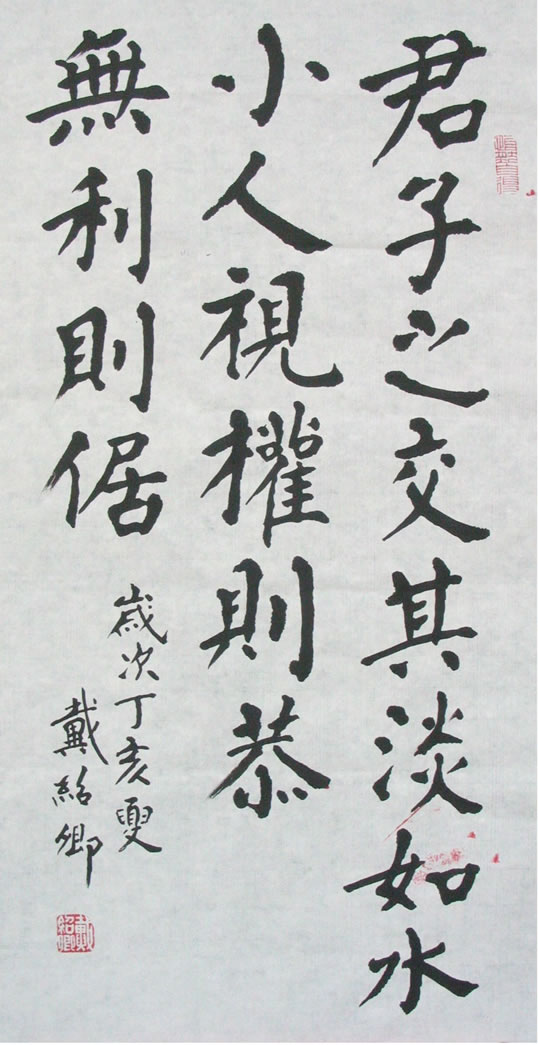 君子之交其淡如水
小人視權則恭
無利則倨
歲次丁亥夏
戴紹卿
戴紹卿